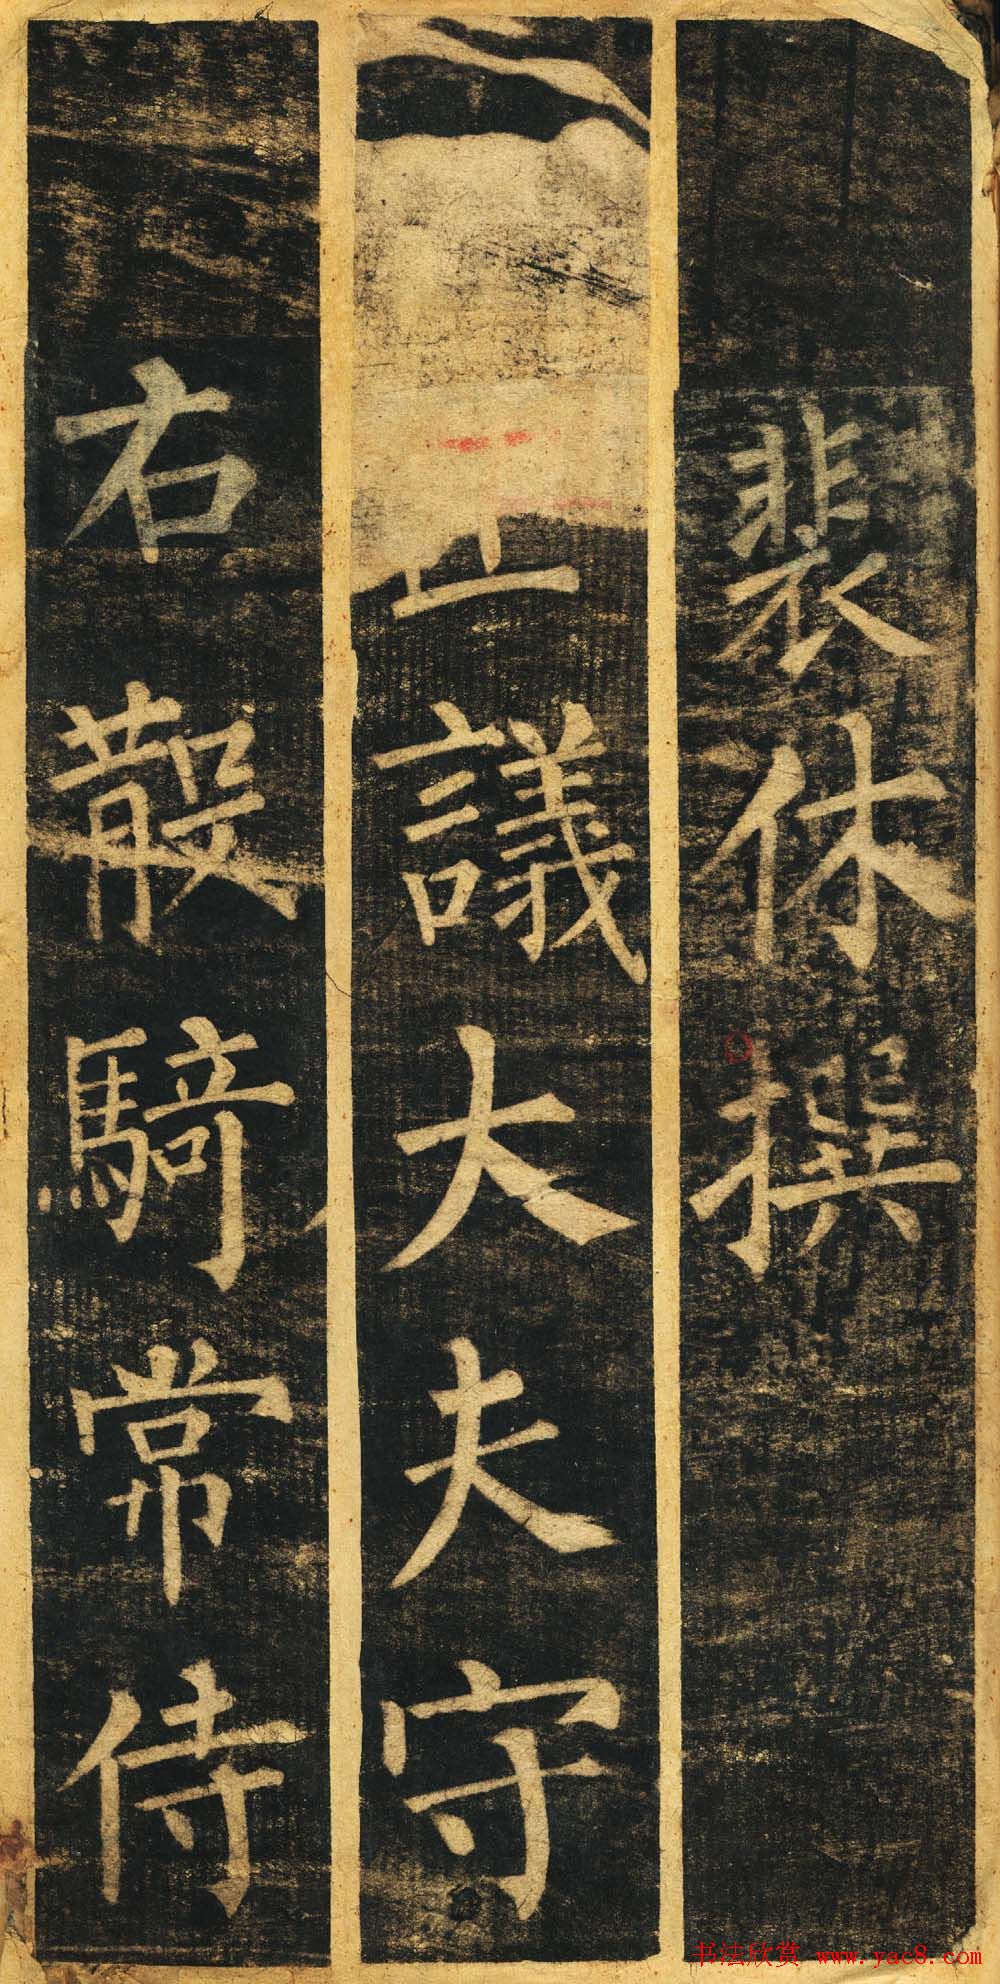 裴休撰
正議大夫守
右散騎常侍
书法欣赏 www.yac8.com